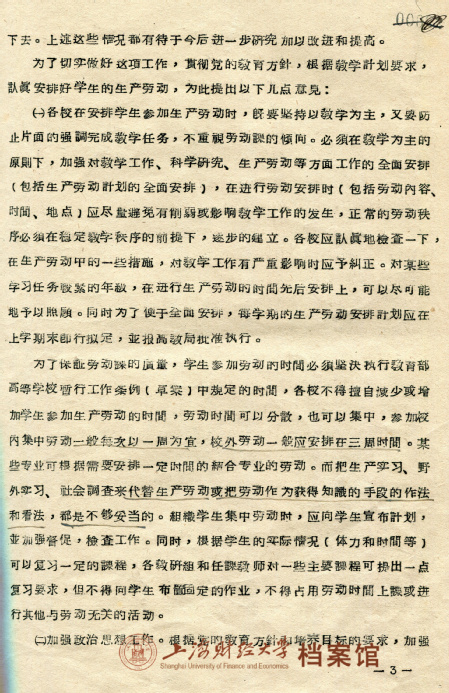 下去。上述这些情况都有待于今后进一步研究加以改进和提高。
为了切实做好这项工作，贯彻党的教育方針，根据教学計划要求，
訒眞安排好学生的生产劳动，为此提出以下几点意見：
㈠各校在安排学生参加生产劳动时，既要坚持以教学为主，又要防
止片面的强調完成教学任务，不重視劳动課的倾向。必須在教学为主的
原則下，加强对教学工作、科学硏究、生产劳动等方面工作的全面安排
（包括生产劳动計划的全面安排），在进行劳动安排时（包括劳动內容、
时間、地点）应尽量避免有削弱或影响教学工作的发生，正常的劳动秩
序必須在稳定教学秩序的前提下，逐步的建立。各校应訒眞地檢查一下，
在生产劳动中的一些措施，对教学工作有严重影响时应予糾正。对某些
学习任务較紧的年級，在进行生产劳动的时間先后安排上，可以尽可能
地予以照顾。同时为了便于全面安排，每学期的生产劳动安排計划应在
上学期末即行拟定，並报高教局批准执行。
为了保証劳动課的质量，学生参加劳动的时間必須坚决执行教育部
高等学校暂行工作条例（草案）中規定的时間，各校不得擅自减少或增
加学生参加生产劳动的时間，劳动时間可以分散，也可以集中，参加校
內集中劳动一般每次以一周为宜，校外劳动一般应安排在三周时間。某
些专业可根据需要安排一定时間的結合专业的劳动。而把生产实习、野
外实习、社会調查来代替生产劳动或把劳动作为获得知識的手段的作法
和看法，都是不够妥当的。組織学生集中劳动时，应向学生宣布計划，
並加强督促，檢查工作。同时，根据学生的实际情况（体力和时間等）
可以复习一定的課程，各教研組和任課教师对一些主要課程可提出一点
复习要求，但不得向学生布置固定的作业，不得占用劳动时間上課或进
行其他与劳动无关的活动。
㈡加强政治思想工作。根据党的教育方針和培养目标的要求，加强
上海财经大学 档案馆
Shanghai University of Finance and Economics
—3—